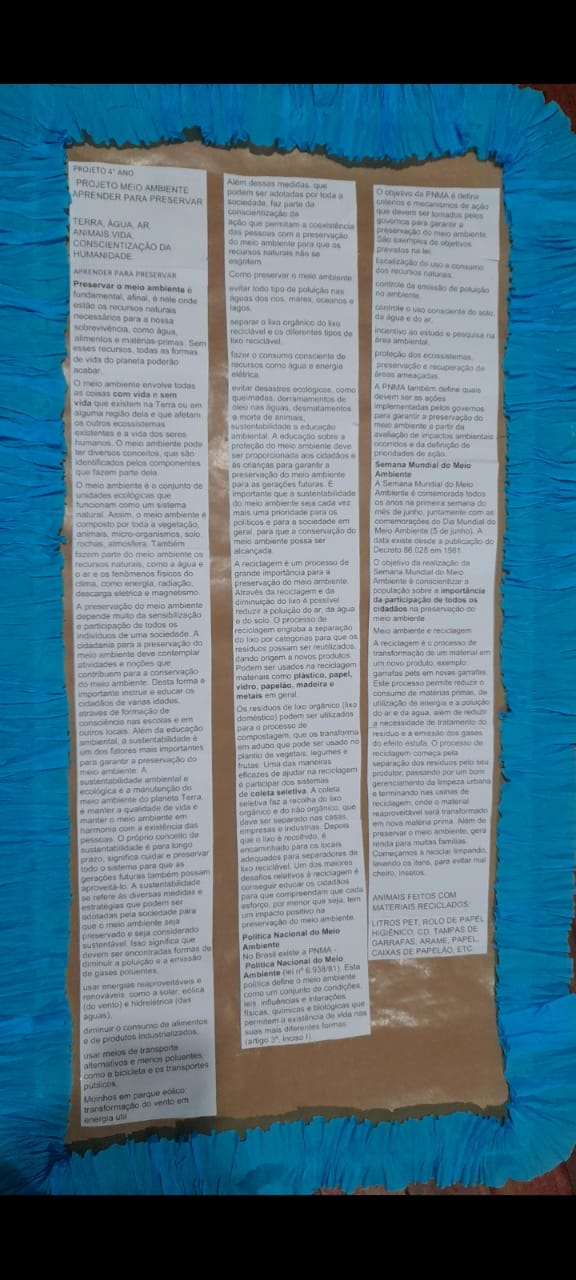 PROJETO 4° ANO
PROJETO MEIO AMBIENTE
APRENDER PARA PRESERVAR
TERRA, ÁGUA, AR,
ANIMAIS VIDA,
CONSCIENTIZAÇÃO DA
HUMANIDADE.
APRENDER PARA PRESERVAR
Preservar o meio ambiente é
fundamental, afinal, é nele onde
estão os recursos naturais
necessários para a nossa
sobrevivência, como água,
alimentos e matérias-primas. Sem
esses recursos, todas as formas
de vida do planeta poderão
acabar.
O meio ambiente envolve todas
as coisas com vida e sem
vida que existem na Terra ou em
alguma região dela e que afetam
os outros ecossistemas
existentes e a vida dos seres
humanos. O meio ambiente pode
ter diversos conceitos, que são
identificados pelos componentes
que fazem parte dela.
O meio ambiente é o conjunto de
unidades ecológicas que
funcionam como um sistema
natural. Assim, o meio ambiente é
composto por toda a vegetação,
animais, micro-organismos, solo,
rochas, atmosfera. Também
fazem parte do meio ambiente os
recursos naturais, como a água e
o ar e os fenômenos físicos do
clima, como energia, radiação,
descarga elétrica e magnetismo.
A preservação do meio ambiente
depende muito da sensibilização
e participação de todos os
indivíduos de uma sociedade. A
cidadania para a preservação do
meio ambiente deve contemplar
atividades e noções que
contribuem para a conservação
do meio ambiente. Desta forma é
importante instruir e educar os
cidadãos de várias idades,
através de formação de
consciência nas escolas e em
outros locais. Além da educação
ambiental, a sustentabilidade é
um dos fatores mais importantes
para garantir a preservação do
meio ambiente. A
sustentabilidade ambiental e
ecológica é a manutenção do
meio ambiente do planeta Terra,
é manter a qualidade de vida e
manter o meio ambiente em
harmonia com a existência das
pessoas. O próprio conceito de
sustentabilidade é para longo
prazo, significa cuidar e preservar
todo o sistema para que as
gerações futuras também possam
aproveitá-lo. A sustentabilidade
se refere às diversas medidas e
estratégias que podem ser
adotadas pela sociedade para
que o meio ambiente seja
preservado e seja considerado
sustentável. Isso significa que
devem ser encontradas formas de
diminuir a poluição e a emissão
de gases poluentes,
usar energias reaproveitáveis e
renováveis, como a solar, eólica
(do vento) e hidrelétrica (das
águas),
diminuir o consumo de alimentos
e de produtos industrializados,
usar meios de transporte
alternativos e menos poluentes,
como a bicicleta e os transportes
públicos,
Moinhos em parque eólico:
transformação do vento em
energia útil
Além dessas medidas, que
podem ser adotadas por toda a
sociedade, faz parte da
conscientização da
ação que permitam a coexistência
das pessoas com a preservação
do meio ambiente para que os
recursos naturais não se
esgotem.
Como preservar o meio ambiente
evitar todo tipo de poluição nas
águas dos rios, mares, oceanos e
lagos,
separar o lixo orgânico do lixo
reciclável e os diferentes tipos de
lixo reciclável.
fazer o consumo consciente de
recursos como água e energia
elétrica.
evitar desastres ecológicos, como
queimadas, derramamentos de
óleo nas águas, desmatamentos
e morte de animais,
sustentabilidade a educação
ambiental. A educação sobre a
proteção do meio ambiente deve
ser proporcionada aos cidadãos e
às crianças para garantir a
preservação do meio ambiente
para as gerações futuras. É
importante que a sustentabilidade
do meio ambiente seja cada vez
mais uma prioridade para os
políticos e para a sociedade em
geral, para que a conservação do
meio ambiente possa ser
alcançada.
A reciclagem é um processo de
grande importância para a
preservação do meio ambiente.
Através da reciclagem e da
diminuição do lixo é possível
reduzir a poluição do ar, da água
e do solo. O processo de
reciclagem engloba a separação
do lixo por categorias para que os
resíduos possam ser reutilizados,
dando origem a novos produtos.
Podem ser usados na reciclagem
materiais como plástico, papel,
vidro, papelão, madeira e
metais em geral.
Os resíduos de lixo orgânico (lixo
doméstico) podem ser utilizados
para o processo de
compostagem, que os transforma
em adubo que pode ser usado no
plantio de vegetais, legumes e
frutas. Uma das maneiras
eficazes de ajudar na reciclagem
é participar dos sistemas
de coleta seletiva. A coleta
seletiva faz a recolha do lixo
orgânico e do não orgânico, que
deve ser separado nas casas,
empresas e indústrias. Depois
que o lixo é recolhido, é
encaminhado para os locais
adequados para separadores de
lixo reciclável. Um dos maiores
desafios relativos à reciclagem é
conseguir educar os cidadãos
para que compreendam que cada
esforço, por menor que seja, tem
um impacto positivo na
preservação do meio ambiente.
Política Nacional do Meio
Ambiente
No Brasil existe a PNMA -
Política Nacional do Meio
Ambiente (lei nº 6.938/81). Esta
política define o meio ambiente
como um conjunto de condições,
leis, influências e interações
físicas, químicas e biológicas que
permitem a existência de vida nas
suas mais diferentes formas
(artigo 3º, inciso I).
O objetivo da PNMA é definir
critérios e mecanismos de ação
que devem ser tomados pelos
governos para garantir a
preservação do meio ambiente.
São exemplos de objetivos
previstos na lei:
fiscalização do uso e consumo
dos recursos naturais,
controle da emissão de poluição
no ambiente,
controle o uso consciente do solo,
da água e do ar,
incentivo ao estudo e pesquisa na
área ambiental,
proteção dos ecossistemas,
preservação e recuperação de
áreas ameaçadas.
A PNMA também define quais
devem ser as ações
implementadas pelos governos
para garantir a preservação do
meio ambiente a partir da
avaliação de impactos ambientais
ocorridos e da definição de
prioridades de ação.
Semana Mundial do Meio
Ambiente
A Semana Mundial do Meio
Ambiente é comemorada todos
os anos na primeira semana do
mês de junho, juntamente com as
comemorações do Dia Mundial do
Meio Ambiente (5 de junho). A
data existe desde a publicação do
Decreto 86.028 em 1981.
O objetivo da realização da
Semana Mundial do Meio
Ambiente é conscientizar a
população sobre a importância
da participação de todos os
cidadãos na preservação do
meio ambiente.
Meio ambiente e reciclagem
A reciclagem é o processo de
transformação de um material em
um novo produto, exemplo:
garrafas pets em novas garrafas.
Este processo permite reduzir o
consumo de matérias primas, de
utilização de energia e a poluição
do ar e da água, além de reduzir
a necessidade de tratamento do
resíduo e a emissão dos gases
do efeito estufa. O processo de
reciclagem começa pela
separação dos resíduos pelo seu
produtor, passando por um bom
gerenciamento da limpeza urbana
e terminando nas usinas de
reciclagem, onde o material
reaproveitável será transformado
em nova matéria prima. Além de
preservar o meio ambiente, gera
renda para muitas famílias.
Começamos a reciclar limpando,
lavando os itens, para evitar mal
cheiro, insetos.
ANIMAIS FEITOS COM
MATERIAIS RECICLADOS:
LITROS PET, ROLO DE PAPEL
HIGIÊNICO, CD, TAMPAS DE
GARRAFAS, ARAME, PAPEL,
CAIXAS DE PAPELÃO, ETC